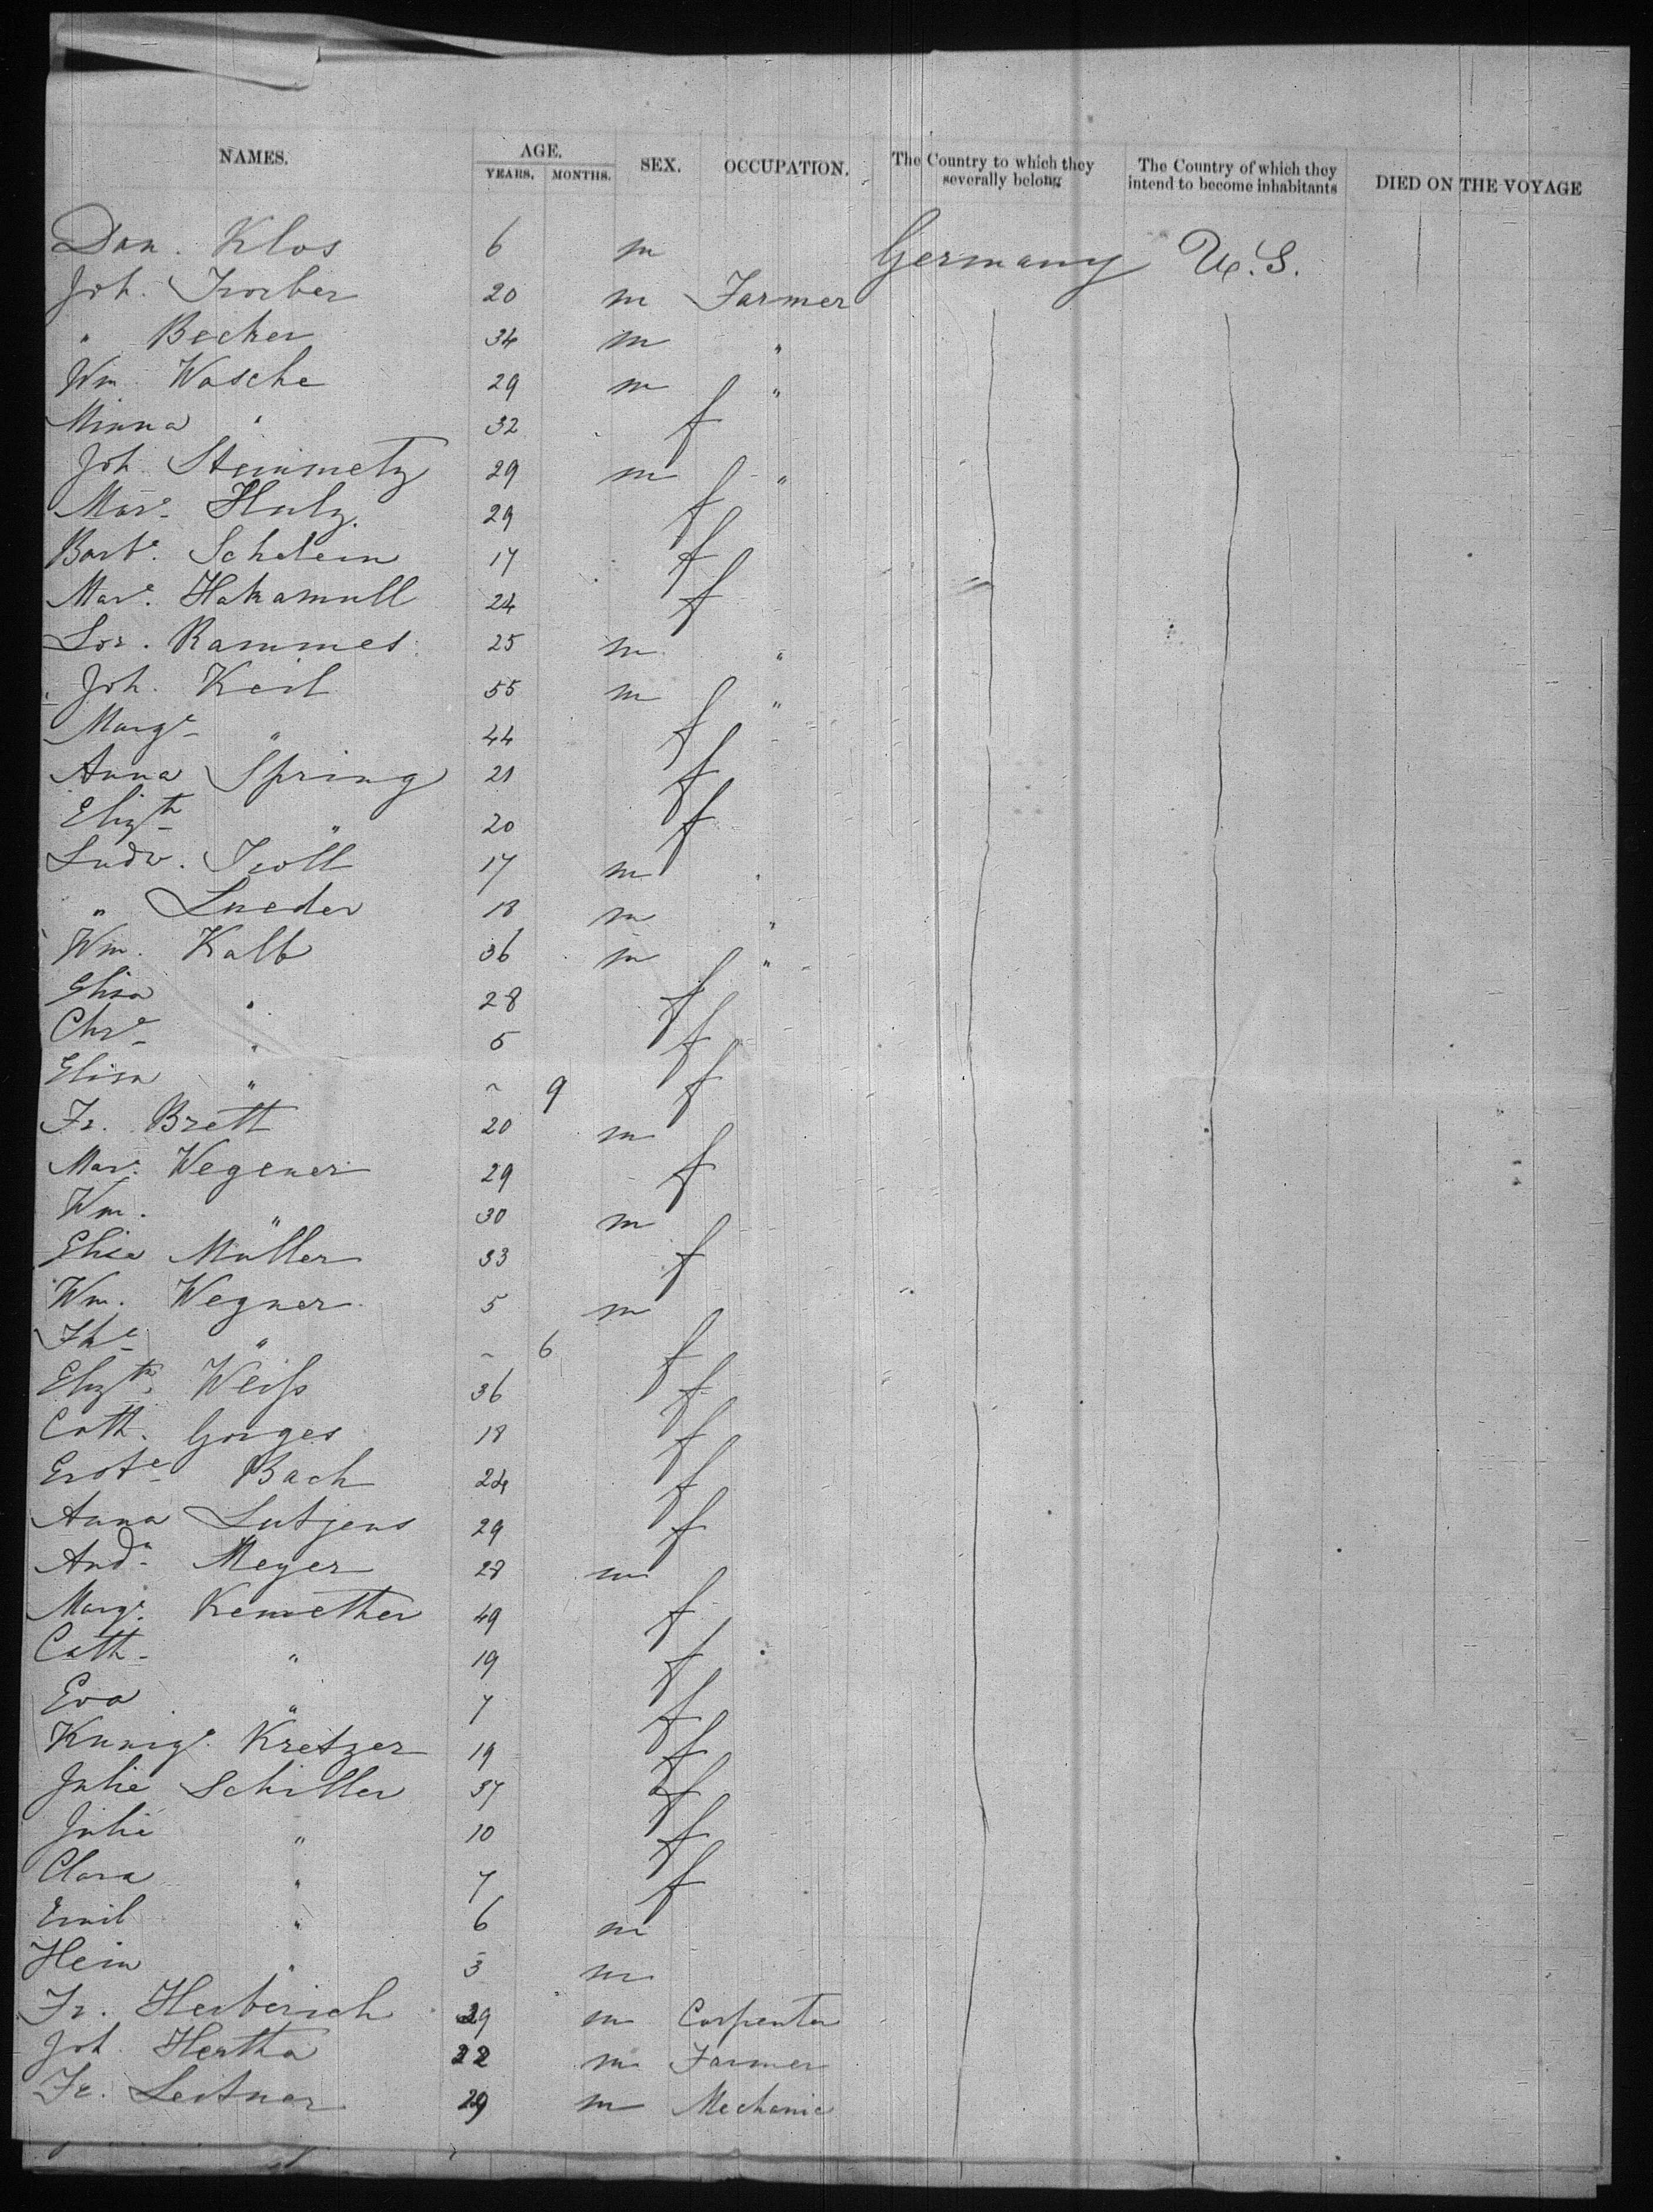 NAMES. AGE. YEARS. MONTHS. SEX. OCCUPATION. The Country to which they severally belong The Country of which they intend to become inhabitants DIED ON THE VOYAGE
Dan. Klos 6 m Germany U.S.
Joh. 20 m Farmer
" Becker 34 m "
Wm. Wasche 29 m "
Minna " 32 f
Joh. Steinmetz 29 m "
Mare. 29 f
Barbe. Schelein 17 f
Mare. Hakamull 24 f
Lor. Rammes 25 m "
Joh. Keil 55 m "
Marge " 44 f
Anna Spring 21 f
Elizth " 20 f
Ludw. Troll 17 m "
" Lueder 18 m "
Wm. Kalb 36 m "
Elisa " 28 f
Chre " 5 f
Elisa " ~ 9 f
Fr. Brett 20 m
Mar. Wegener 29 f
Wm. " 30 m
Elise Muller 33 f
Wm. Wegner 5 m
" ~ 6 f
Elizth. Weiss 36 f
Cath. Gorges 18 f
Bach 24 f
Anna Lutjens 29 f
Andr. Meyer 28 m
Marge. Kemether 49 f
Cath. " 19 f
Eva " 7 f
Kunige. Kretzer 19 f
Julie Schiller 37 f
Julie " 10 f
Clara " 7 f
Emil " 6 m
Hein " 3 m
Fr. Herberich 29 m Carpenter
Joh. Hertha 22 m Farmer
Fr. Leitner 29 m Mechanic